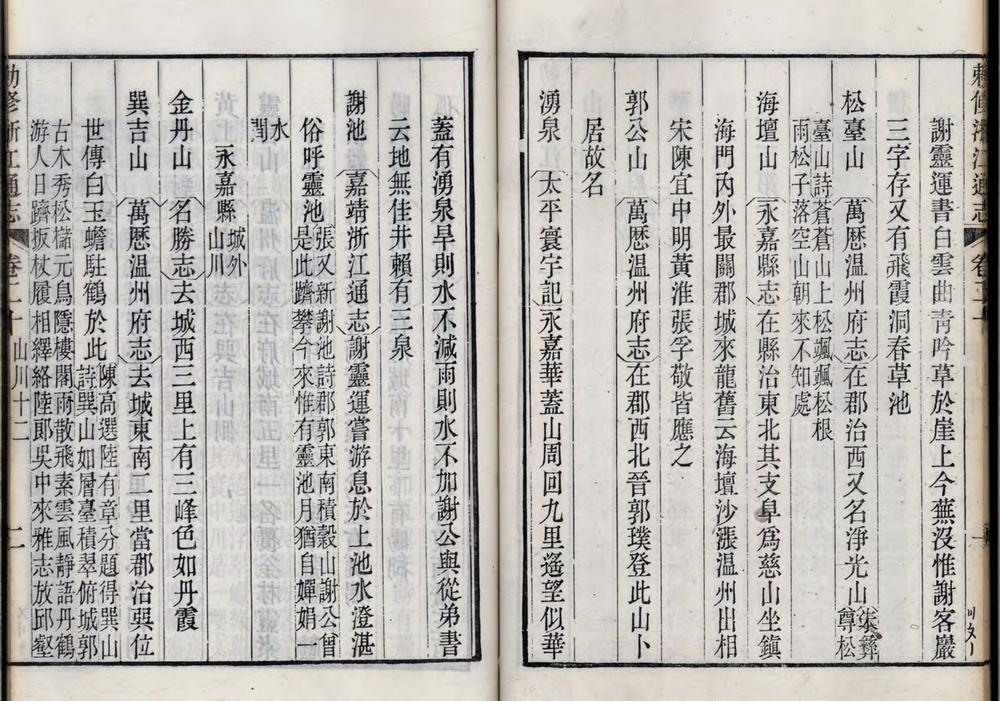 謝靈運書白雲曲青吟草於崖上今蕪沒惟謝客巖
三字存又有飛霞洞春草池
松臺山萬歷温州府志在郡治西又名淨光山朱彝尊松
臺山詩蒼蒼山上松颯颯松根
雨松子落空山朝來不知處
海壇山永嘉縣志在縣治東北其支阜為慈山坐鎮
海門內外最關郡城來龍舊云海壇沙漲温州出相
宋陳宜中明黃淮張孚敬皆應之
郭公山萬歷温州府志在郡西北晉郭璞登此山卜
居故名
湧泉太平寰宇記永嘉華蓋山周回九里遙望似華
蓋有湧泉旱則水不減雨則水不加謝公與從弟書
云地無佳井賴有三泉
謝池嘉靖浙江通志謝靈運嘗游息於上池水澄湛
俗呼靈池張又新謝池詩郡郭東南積穀山謝公曾
是此躋攀今來惟有靈池月猶自嬋娟一
水
閒
永嘉縣城外山川
金丹山名勝志去城西三里上有三峰色如丹霞
巽吉山萬歷温州府志去城東南二里當郡治巽位
世傳白玉蟾駐鶴於此陳高選陸有章分題得巽山
詩巽山如層臺積翠俯城郭
古木秀松櫧元鳥隱樓閣雨散飛素雲風靜語丹鶴
游人日躋扳杖履相繹絡陸郎吳中來雅志放邱壑
勅修浙江通志 卷二十 山川十二 二